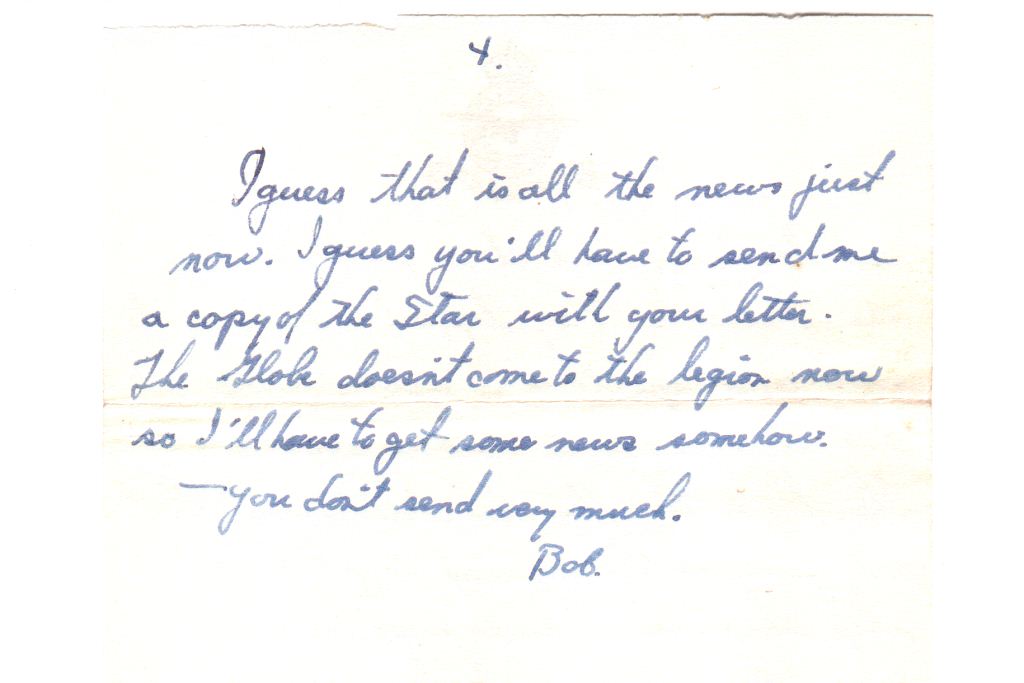 4.
I guess that is all the news just
now. I guess you'll have to send me
a copy of the Star with your letter.
The Globe doesn't come to the legion now
so I'll have to get some news somehow.
— you don't send very much.
Bob.